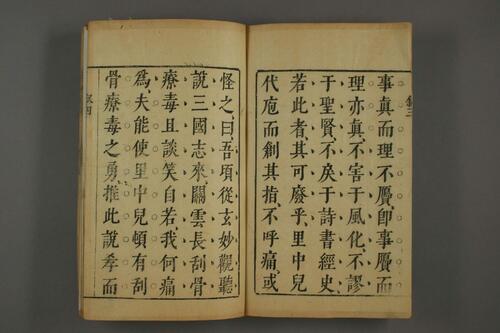 敘三
事真而理不贗即事贗而
理亦真不害于風化不謬
于聖賢不戾于詩書經史
若此者其可廢乎里中兒
代庖而創其指不呼痛或
怪之曰吾頃從玄妙觀聽
說三國志來關雲長刮骨
療毒且談笑自若我何痛
爲夫能使里中兒頓有刮
骨療毒之勇推此說孝而
敘四